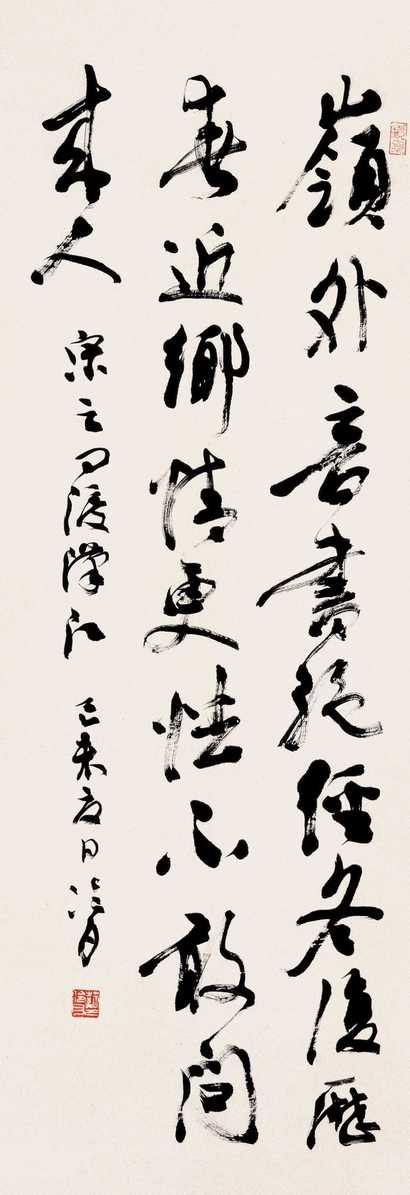 嶺外音書絕經冬復歷
春近鄉情更怯不敢問
來人
宋之問渡漢江 己未夏日 浩月